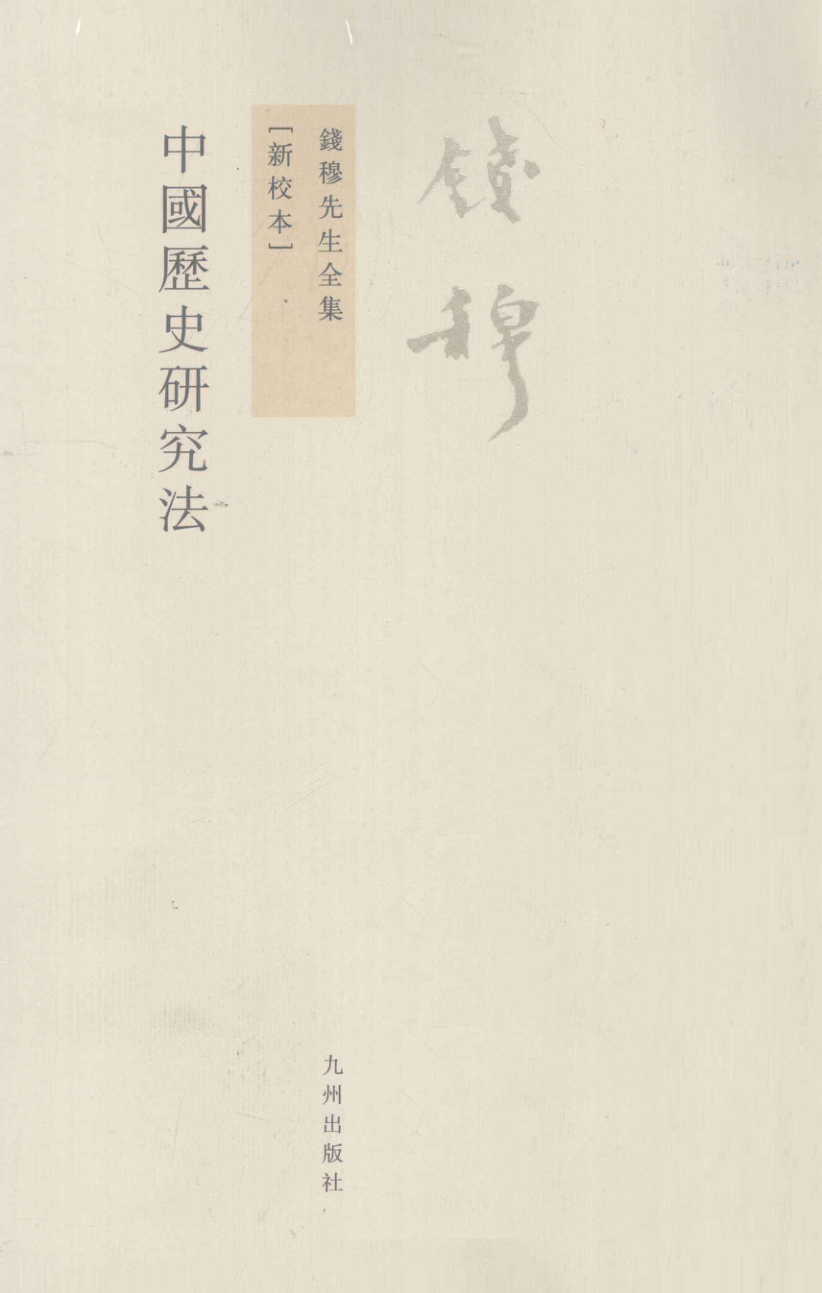 錢穆
錢穆先生全集
［新校本］
中國歷史研究法
九州出版社